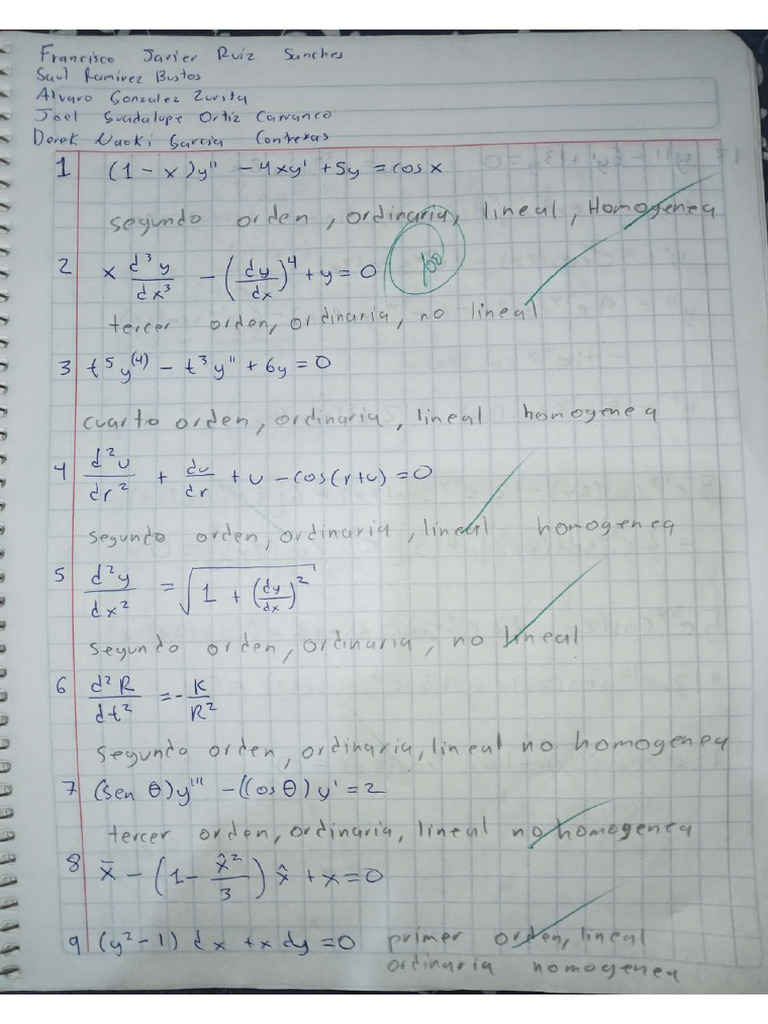 Francisco Javier Ruiz Sanches
Saul Ramirez Bustos
Alvaro Gonzalez Zurita
Joel Guadalupe Ortiz Carranco
Derek Naoki Garcia Contreras
1 (1 - x)y'' - 4xy' + 5y = cos x
segundo orden, ordinaria, lineal, Homogenea
2 x d³y/dx³ - (dy/dx)⁴ + y = 0 100
tercer orden, ordinaria, no lineal
3 t⁵y⁽⁴⁾ - t³y'' + 6y = 0
cuarto orden, ordinaria, lineal homogenea
4 d²u/dr² + du/dr + u - cos(r+u) = 0
segundo orden, ordinaria, lineal homogenea
5 d²y/dx² = √(1 + (dy/dx)²)
segundo orden, ordinaria, no lineal
6 d²R/dt² = - K/R²
segundo orden, ordinaria, lineal no homogenea
7 (sen θ)y''' - (cos θ)y' = 2
tercer orden, ordinaria, lineal no homogenea
8 x̄ - (1 - x̂²/3) x̂ + x = 0
9 (y² - 1) dx + x dy = 0 primer orden, lineal
ordinaria homogenea